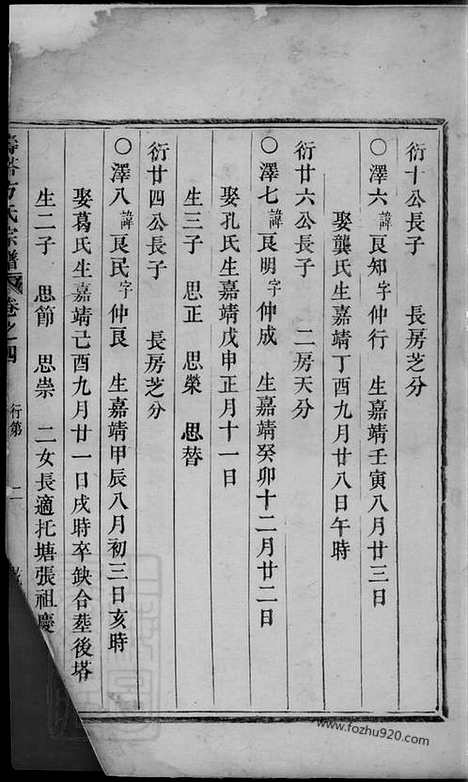 衍十公長子　長房芝分
〇澤六諱良知字仲行　生嘉靖壬寅八月廿三日
娶龔氏生嘉靖丁酉九月廿八日午時
衍廿六公長子　二房天分
〇澤七諱良明字仲成　生嘉靖癸卯十二月廿二日
娶孔氏生嘉靖戊申正月十一日
生三子　思正　思榮　思替
衍廿四公長子　長房芝分
〇澤八諱良民字仲良　生嘉靖甲辰八月初三日亥時
娶葛氏生嘉靖己酉九月廿一日戌時卒缺合葬後塔
生二子　思節　思崇　二女長適托塘張祖慶
方氏宗譜　卷之四　行第　二
www.fozhu920.com